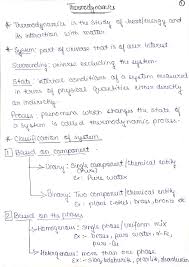 Thermodynamics
①
* Thermodynamics is the study of heat/energy and
its interaction with matter.
* System: part of universe that is of our interest
Surrounding: universe excluding the system.
State: intensive conditions of a system measured
in terms of physical quantities either directly
or indirectly.
Process: phenomenon which changes the state of
a system is called thermodynamic process.
* Classification of system
1 Based on component -
Unary: Single component (chemical entity
Ex: Pure water
Binary: Two component /chemical entity
ex: plain carbon, brass, bronze etc
2 Based on its phase -
Homogenous: single phase / uniform mix
Ex:- brass, pure water, α-Fe,
pure-Cu
Heterogenous: more than one phase.
Ex:-